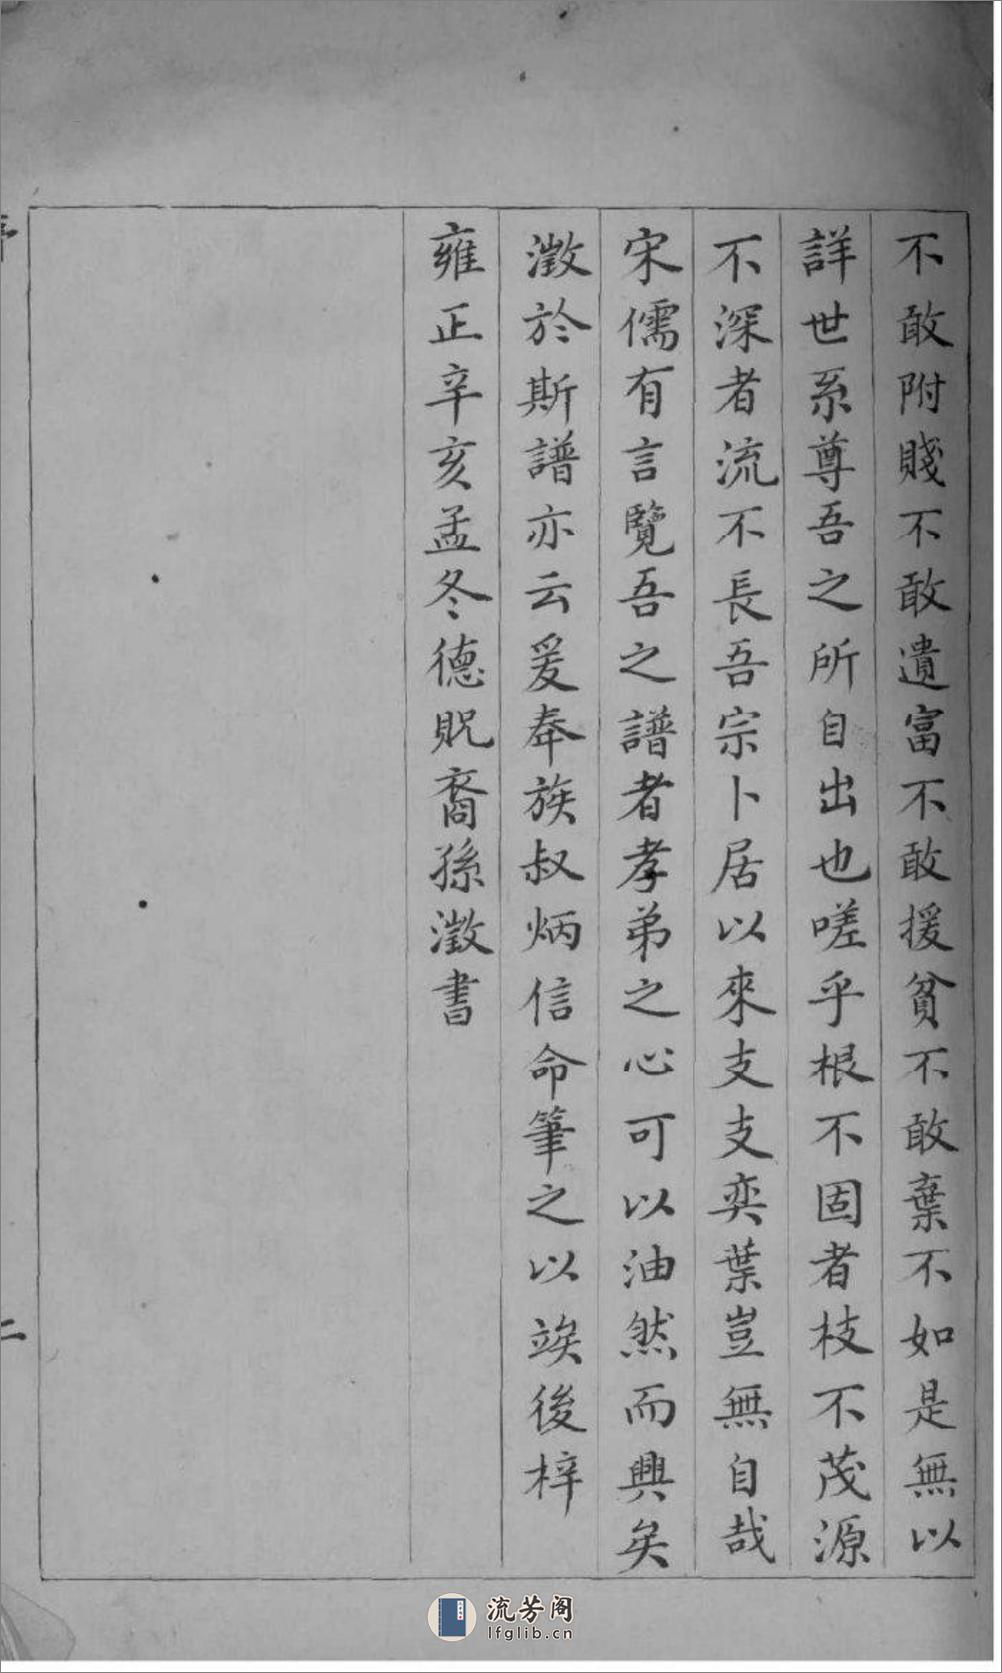 不敢附賤不敢遺富不敢援貧不敢棄不如是無以
詳世系尊吾之所自出也嗟乎根不固者枝不茂源
不深者流不長吾宗卜居以來支支奕葉豈無自哉
宋儒有言覽吾之譜者孝弟之心可以油然而興矣
澂於斯譜亦云爰奉族叔炳信命筆之以竢後梓
雍正辛亥孟冬德貺裔孫澂書
二
流芳阁
lfglib.cn